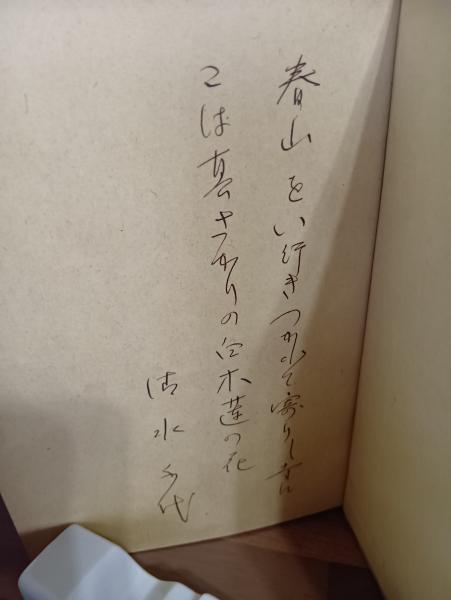 春山をい行きつかれて寄りし苔
こは真さかりの白木蓮の花
清水千代